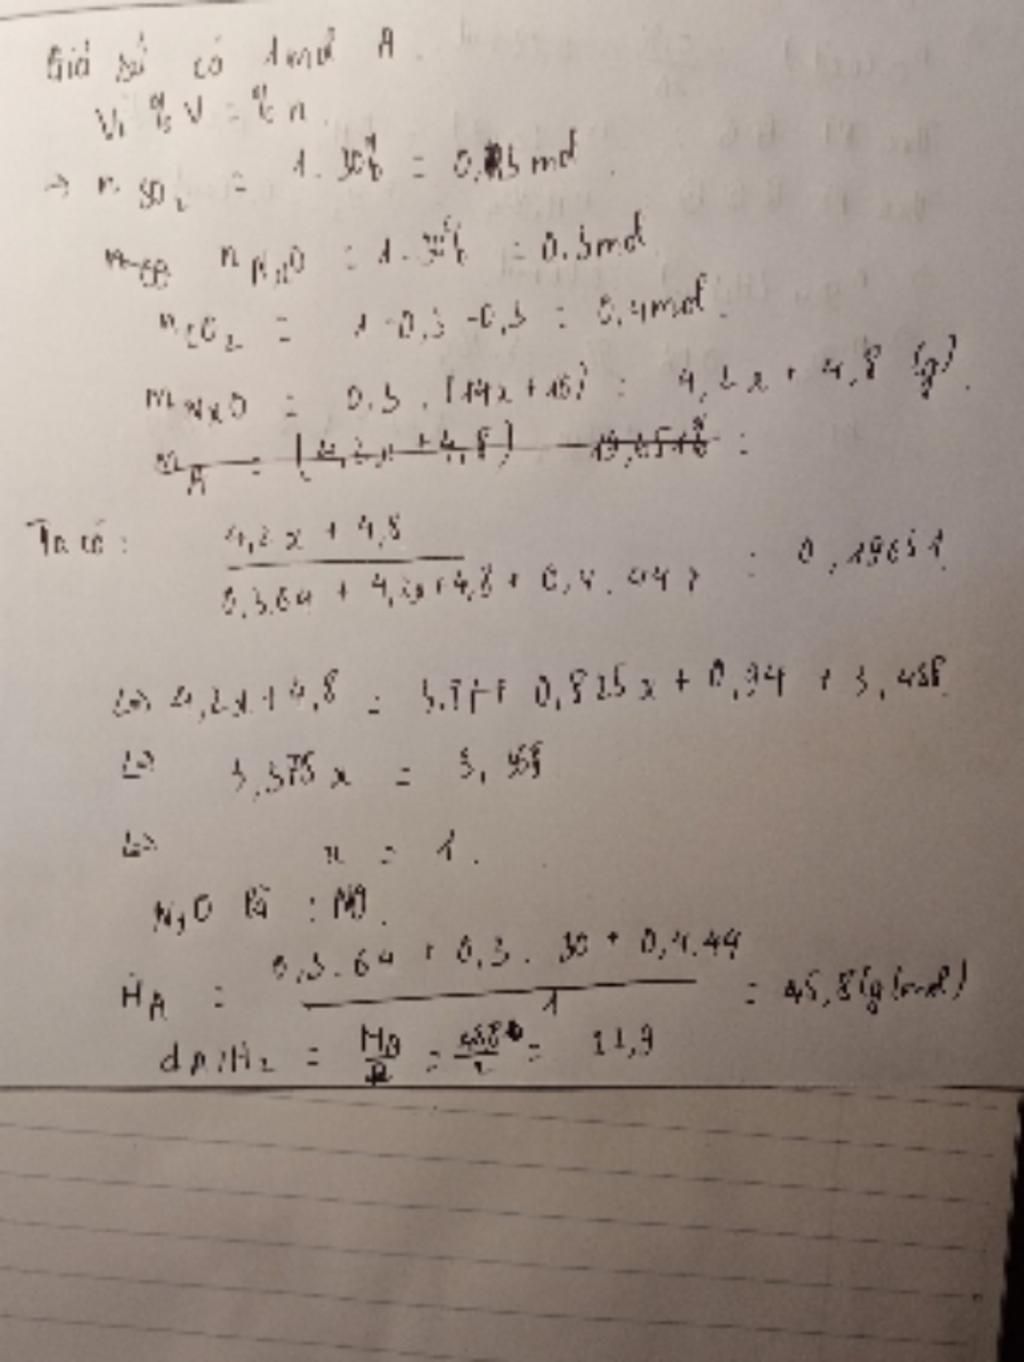 Giả sử có 1 mol A.
Vì %V = %n.
→ n SO₂ = 1.30% = 0,3 mol.
n NxO = 1.30% = 0.3mol
nCO₂ = 1-0,3-0,3 = 0,4mol.
mNxO = 0.3.(14x+16) = 4,2x + 4,8 (g).
mA = (4,2x + 4,8)
Ta có: (4,2x + 4,8)/(0,3.64 + 4,2x+4,8 + 0,4.44) = 0,19651
<=> 4,2x+4,8 = 0,825x + 0,94 + 3,458
<=> 3,375x =
<=> x = 1.
NxO là : NO.
MA = (0,3.64 + 0,3.30 + 0,4.44)/1 = 45,8(g/mol)
dA/H₂ = MA/2 = 45,8/2 = 22,9